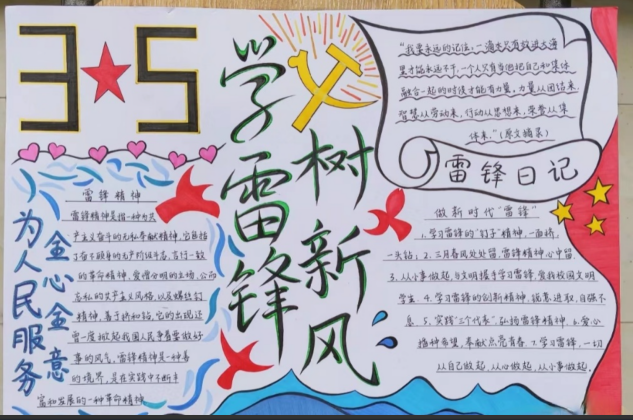 3★5
学雷锋
树新风
"我要永远的记住，一滴水只有放进大海
里才能永远不干，一个人只有当他把自己和集体
融合一起的时候才能有力量，力量从团结来，
智慧从劳动来，行动从思想来，荣誉从集
体来。"(原文摘录)
雷锋日记
全心全意
为人民服务
雷锋精神
雷锋精神是指一种为共
产主义奋斗的无私奉献精神，它包括
了奋不顾身的无产阶级斗志，言行一致
的革命精神，爱憎分明的立场，公而
忘私的共产主义风格，以及螺丝钉
精神，善于挤和钻，它的出现还
曾一度掀起我国人民争着要做好
事的风气，雷锋精神是一种善
的境界，是在实践中不断丰
富和发展的一种革命精神
做新时代"雷锋"
1.学习雷锋的"钉子"精神，一面挤，
一头钻；2.三月春风处处留，雷锋精神心中留
3.从小事做起，与文明携手学习雷锋，爱我校园文明
学生 4.学习雷锋的创新精神，锐意进取，自强不
息 5.实践"三个代表"，弘扬雷锋精神。6.爱心
播种希望，奉献点亮青春 7.学习雷锋，一切
从自己做起，从心做起，从小事做起。